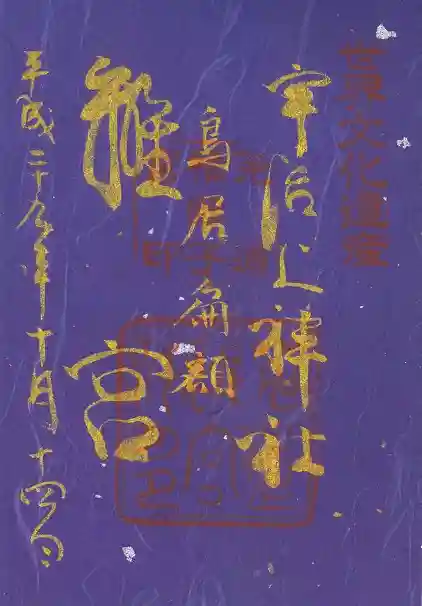 世界文化遺産
宇治上神社
鳥居扁額
離宮
平成二十九年十月十四日